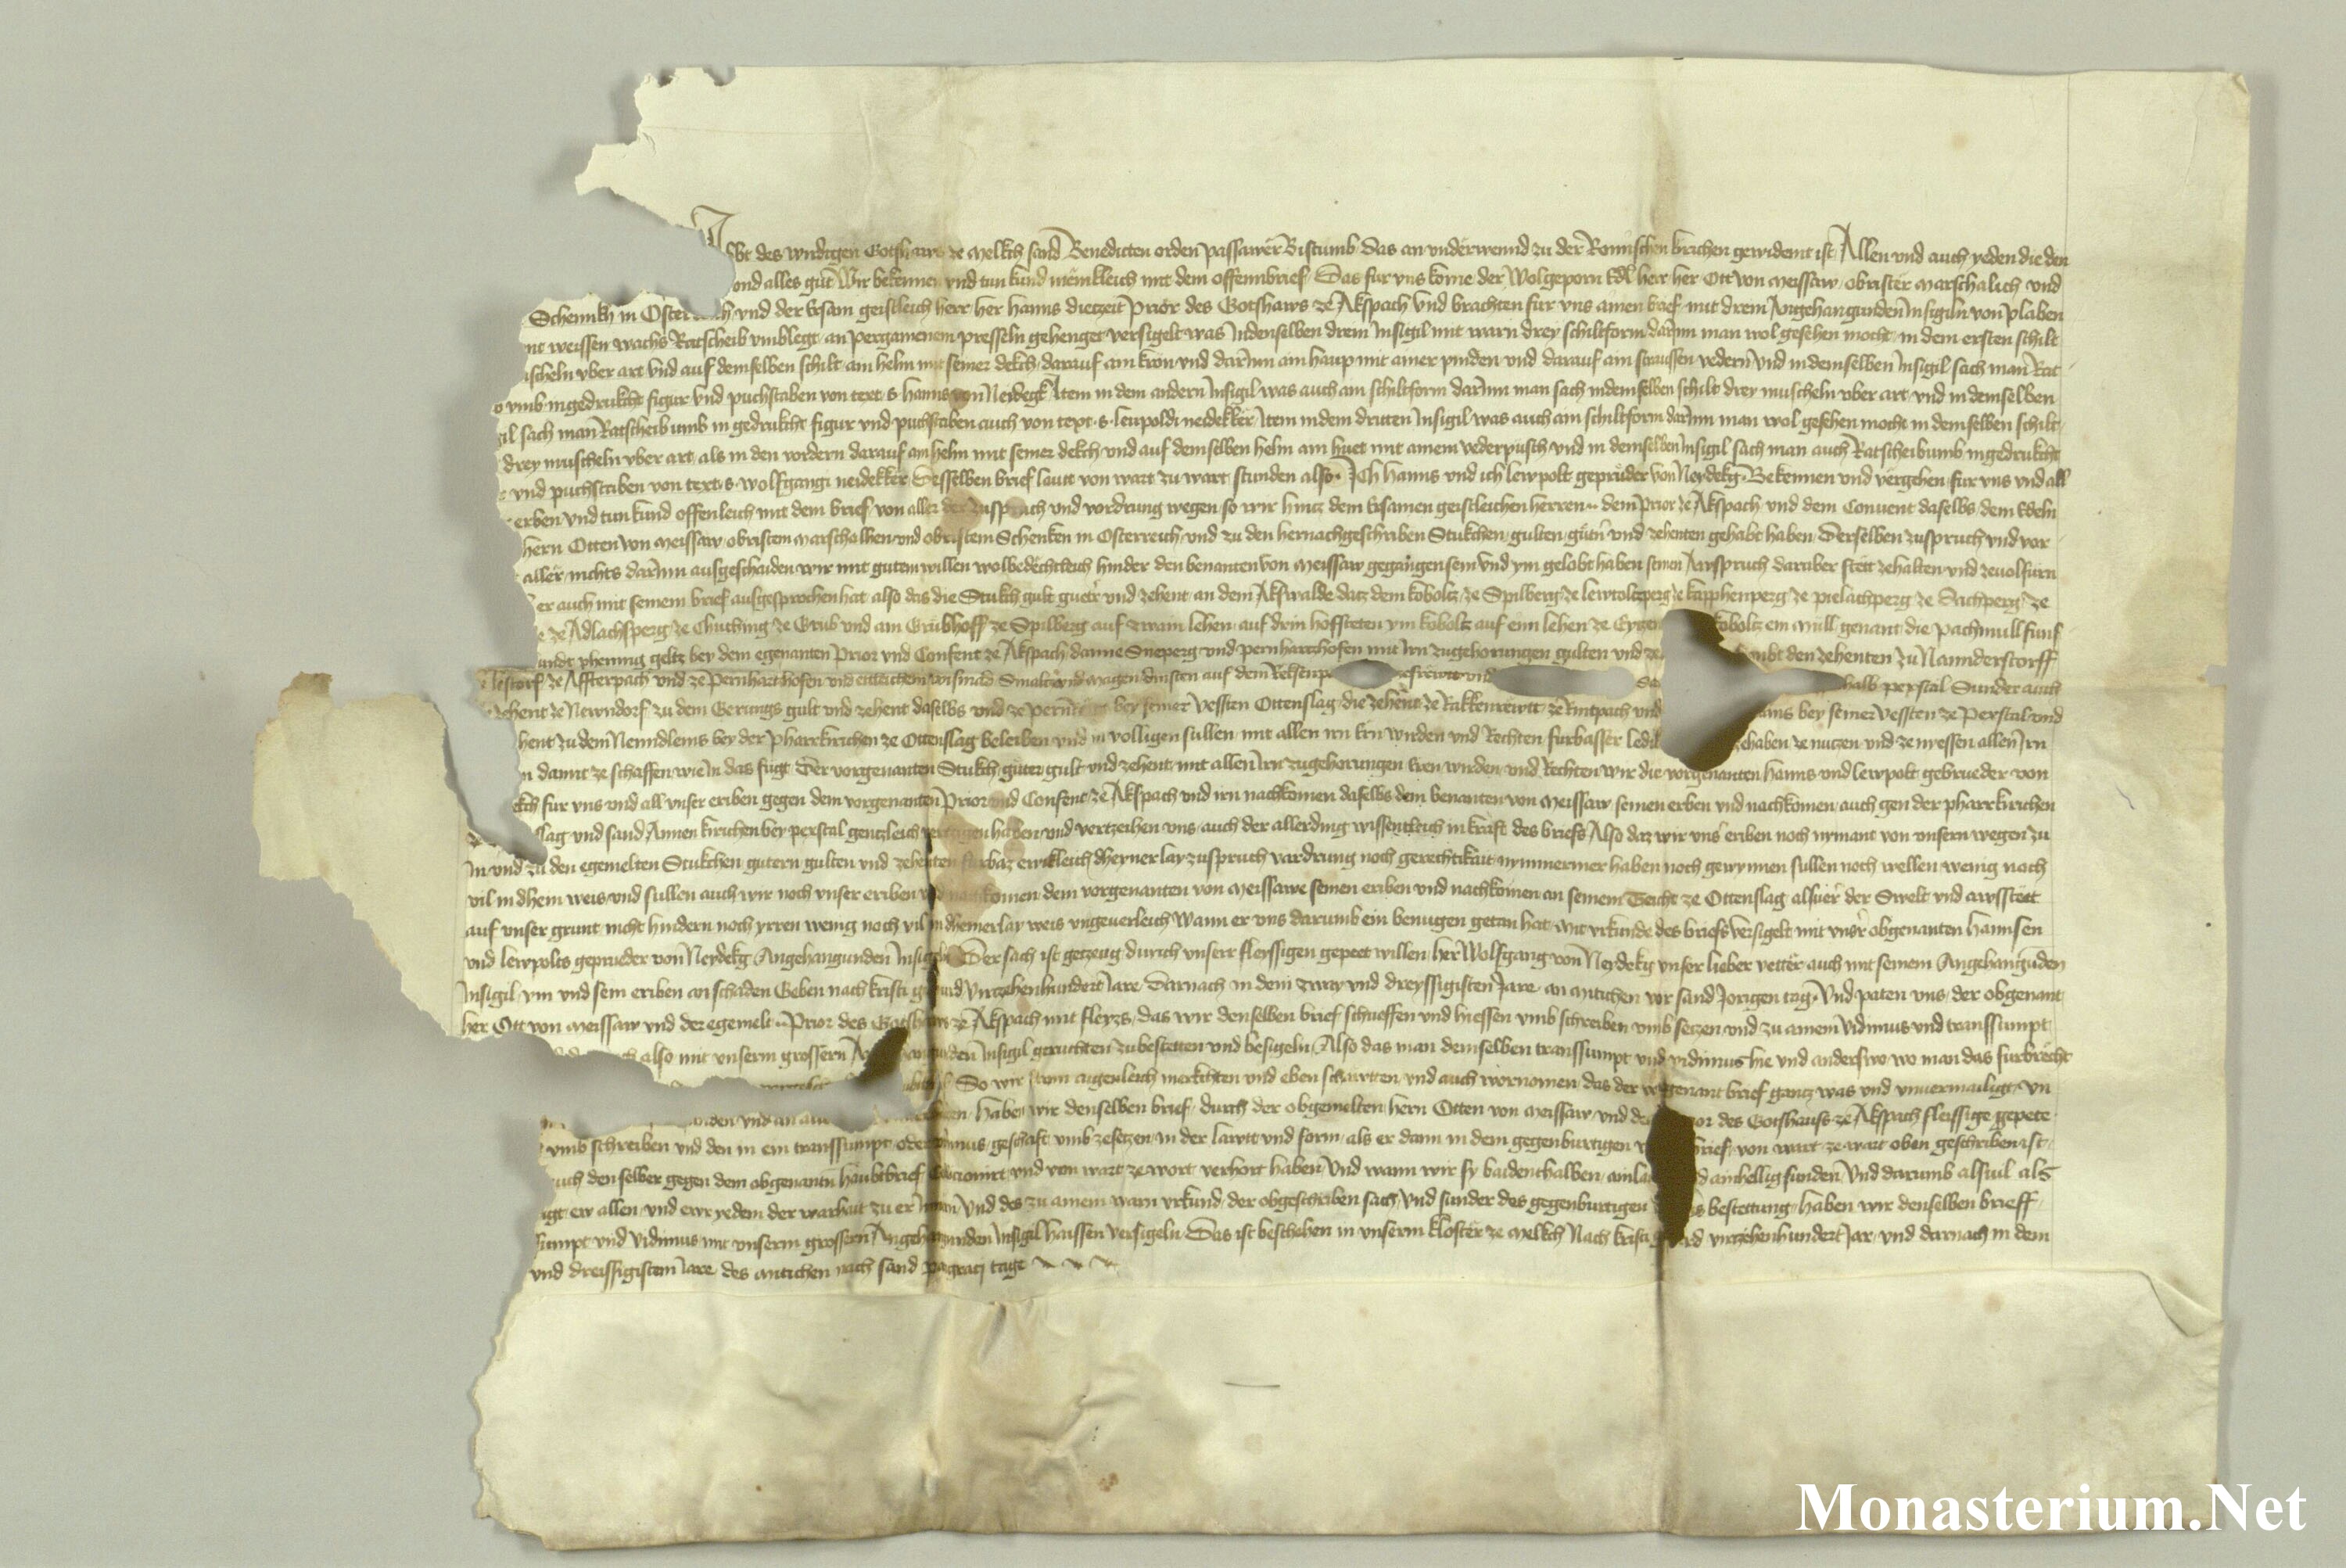 Abt des wirdigen Gotshaws ze Melkch sand Benedicten orden Passawer Bistumb das an underwennd zu der Romischen kirchen gewidemt ist Allen und auch yeden die den
und alles gut Wir bekennen und tun kund menikleich mit dem offenn brief Das fur uns kome der Wolgeporn Edl herr her Ott von Meissaw obrister Marschalich und
Schennkh in Osterreich und der Ersam geistleich herr her Hanns dietzeit Prior des Gotshaws ze Akspach und brachten fur uns ainen brief mit drein Angehangunden Insigiln von plaben
mit weissen wachs Ratscheib umblegt an pergamenem presseln gehenget versigelt was In denselben drein Insigil mit warn drey schiltform darinn man wol gesehen mocht in dem ersten schilt
muscheln uber art und auf demselben schilt ain helm mit seiner dekch darauf ain kron und darinn ain haup mit ainer pinden und darauf ain straussen vedern und in demselben Insigil sach man Rat
umb ingedrukcht figur und puchstaben von text s hanns von Neidegk Item in dem andern Insigil was auch ain schiltform darinn man sach in demselben schilt drey muscheln uber art und in demselben
sach man Ratscheib umb in gedrukcht figur und puchstaben auch von text s leupoldi neidekker Item in dem dritten Insigil was auch ain schiltform darinn man wol gesehen mocht in demselben schilt
drey muscheln uber art als in den vordern darauf ain helm mit seiner dekch und auf demselben helm ain huet mit ainem vederpusch und in demselben Insigil sach man auch Ratscheib umb ingedrukcht
und puchstaben von text s wolfgangi neidekker Desselben brief laut von wart zu wart stunden also Ich Hanns und ich lewpolt geprüder von Neydekg Bekennen und vergehen fur uns und all
erben und tun kund offenleich mit dem brief von aller der zuspruch und vordrung wegen so wir hintz dem Ersamen geistleichen herren dem Prior ze Akspach und dem Convent daselbs dem Edeln
hern Otten von Meissaw obristem Marschalhen und obristem Schenken in Osterreich und zu den hernachgeschriben Stukchen gulten gütern und zehenten gehabt haben Derselben zuspruch und vor
aller nichts darinn ausgeschaiden wir mit gutem willen wolbedechtleich hinder den benanten von Meissaw gegangen sein und ym gelobt haben seinen Ausspruch daruber stett ze halten und ze volfurn
er auch mit seinem brief ausgesprochen hat also das die Stukch gult gueter und zehent an dem Akswalde datz dem koboltz ze Spilberg ze lewtoltzperg ze kapphenperg ze pielachperg ze Aichperg ze
ze Adlachsperg ze Chuching ze Grub und am Grubhoff ze Spilberg auf zwain lehen auf drin hofsteten ym koboltz auf einn lehen ze Eygen koboltz ein Mull genant die pachmull funf
phunndt phennig geltz bey dem egenanten Prior und Confent ze Akspach danne Sneperg und pernhartzhofen mit irn zugehorungen gulten und ze den zehenten zu Nannderstorff
ze Affterpach und ze Pernhartzhofen und auf dem halb perxstal Sunder auch
zehent ze Newndorf zu dem Gerungs gult und zehent daselbs und ze bey seiner vessten Ottenslag die zehent ze Rakkenrewtt ze Rintpach und bey seiner vessten ze Perxstal und
zehent zu dem Nenndleins bey der pharrkirchen ze Ottenslag beleiben und in volligen sullen mit allen irn Ern wirden und Rechten furbasser ledi zehaben ze nutzen und ze niessen allen irn
damit ze schaffen wie in das fugt Der vorgenanten Stukch guter gult und zehent mit allen irn zugehorungen Eren wirden und Rechten wir die vorgenanten Hanns und lewpolt gebrueder von
fur uns und all unser eriben gegen dem vorgenanten Prior und Confent ze Akspach und irn nachkomen daselbs dem benanten von Meissaw seinen erben und nachkomen auch gen der pharrkirichen
und sand Annen kirichen bey perxstal gentzleich vertzigen haben und vertzeihen uns auch der allerding wissentleich in kraft des briefs Also daz wir uns eriben noch nymant von unsern wegen zu
In und zu den egemelten Stukchen gutern gulten und zehenten furbaz ewikleich dheynerlay zuspruch vardrung noch gerechtikait nymmermer haben noch gewynnen sullen noch wellen wenig noch
vil in dhein weis und sullen auch wir noch unser eriben und nachkomen dem vorgenanten von Meissawe seinen eriben und nachkomen an seinem Teicht ze Ottenslag alsver der Swelt und awsstett
auf unser grunt nicht hindern noch yrren wenig noch vil in dheinerlay weis ungeverleich Wann er uns darumb ein benugen getan hat Mit urkunde des briefs versigelt mit unser obgenanten Hannsen
und lewpolts geprueder von Neydekg Angehangunden Insigeln Der sach ist getzeug durich unserr fleissigen gepeet willen her Wolfgang von Neydekg unser lieber vetter auch mit seinem Angehangunden
Insigil ym und sein eriben an schaden Geben nach kristi gepurd virtzehenhundert Jare Darnach in dem zway und dreyssigisten Jare an Mitichen vor sand Jorigen tag Und paten uns der obgenant
her Ott von Meissaw und der egemelt Prior des Gotshaws ze Akspach mit fleyzz das wir denselben brief schueffen und hiessen umb schreiben umb setzen und zu ainem Vidimus und transsumpt
also mit unserm grossern Angehangunden Insigil geruchten zu bestetten und besigeln Also das man demselben transsumpt und vidimus hie und anderswo wo man das furbrecht
So wir augenleich merkchten und eben schawtten und auch vornomen das der vorgenant brief gantz was und unvermailigt un
haben wir denselben brief durch der obgemelten hern Otten von Meissaw und des Prior des Gotshauss ze Akspach fleissige gepete
umb schreiben und den in ein transsumpt oder vidimus geschaft umb ze setzen in der lawtt und form als er dann in dem gegenburtigen brief von wart ze wart oben geschriben ist
auch den selber gegen dem obgenantn haubtbrief und von wart ze wort verhort haben Und wann wir sy baidenthalben ainhellig funden Und darumb alsvil als
ew allen und ewr yedem der warhait zu er Und des zu ainem warn urkund der obgeschriben sach Und sunder des gegenburtigen bestettung haben wir denselben brieff
transsumpt und vidimus mit unserm grossern Angehangunden Insigil haissen versigeln Das ist bescheben in unserm kloster ze Melkch Nach kristi gepurd virtzehenhundert Jar und darnach in dem
und dreissigistem Jare des Mitichen nach sand Pangratz tage
Monasterium.Net